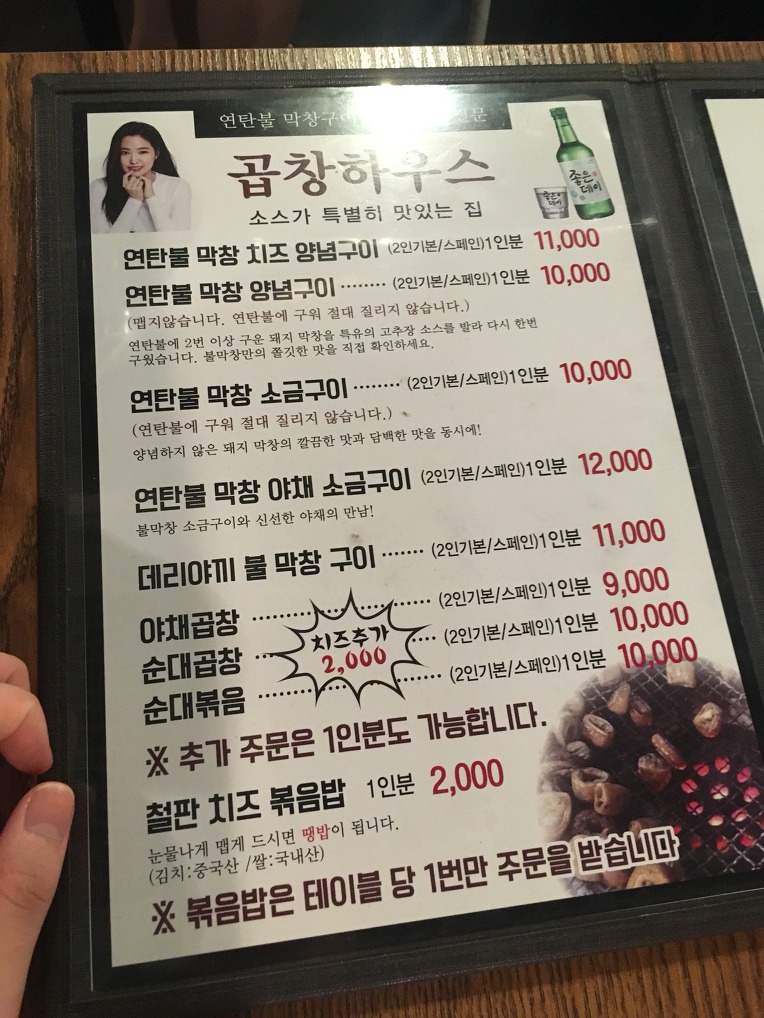 연탄불 막창구이
곱창하우스
소스가 특별히 맛있는 집
좋은데이
좋은데이
연탄불 막창 치즈 양념구이 (2인기본/스페인)1인분 11,000
연탄불 막창 양념구이 ········ (2인기본/스페인)1인분 10,000
(맵지않습니다. 연탄불에 구워 절대 질리지 않습니다.)
연탄불에 2번 이상 구운 돼지 막창을 특유의 고추장 소스를 발라 다시 한번
구웠습니다. 불막창만의 쫄깃한 맛을 직접 확인하세요.
연탄불 막창 소금구이 ········ (2인기본/스페인)1인분 10,000
(연탄불에 구워 절대 질리지 않습니다.)
양념하지 않은 돼지 막창의 깔끔한 맛과 담백한 맛을 동시에!
연탄불 막창 야채 소금구이 (2인기본/스페인)1인분 12,000
불막창 소금구이와 신선한 야채의 만남!
데리야끼 불 막창 구이 ······· (2인기본/스페인)1인분 11,000
야채곱창 (2인기본/스페인)1인분 9,000
순대곱창 (2인기본/스페인)1인분 10,000
순대볶음 (2인기본/스페인)1인분 10,000
치즈추가
2,000
※ 추가 주문은 1인분도 가능합니다.
철판 치즈 볶음밥 1인분 2,000
눈물나게 맵게 드시면 땡밥이 됩니다.
(김치:중국산 /쌀:국내산)
※ 볶음밥은 테이블 당 1번만 주문을 받습니다